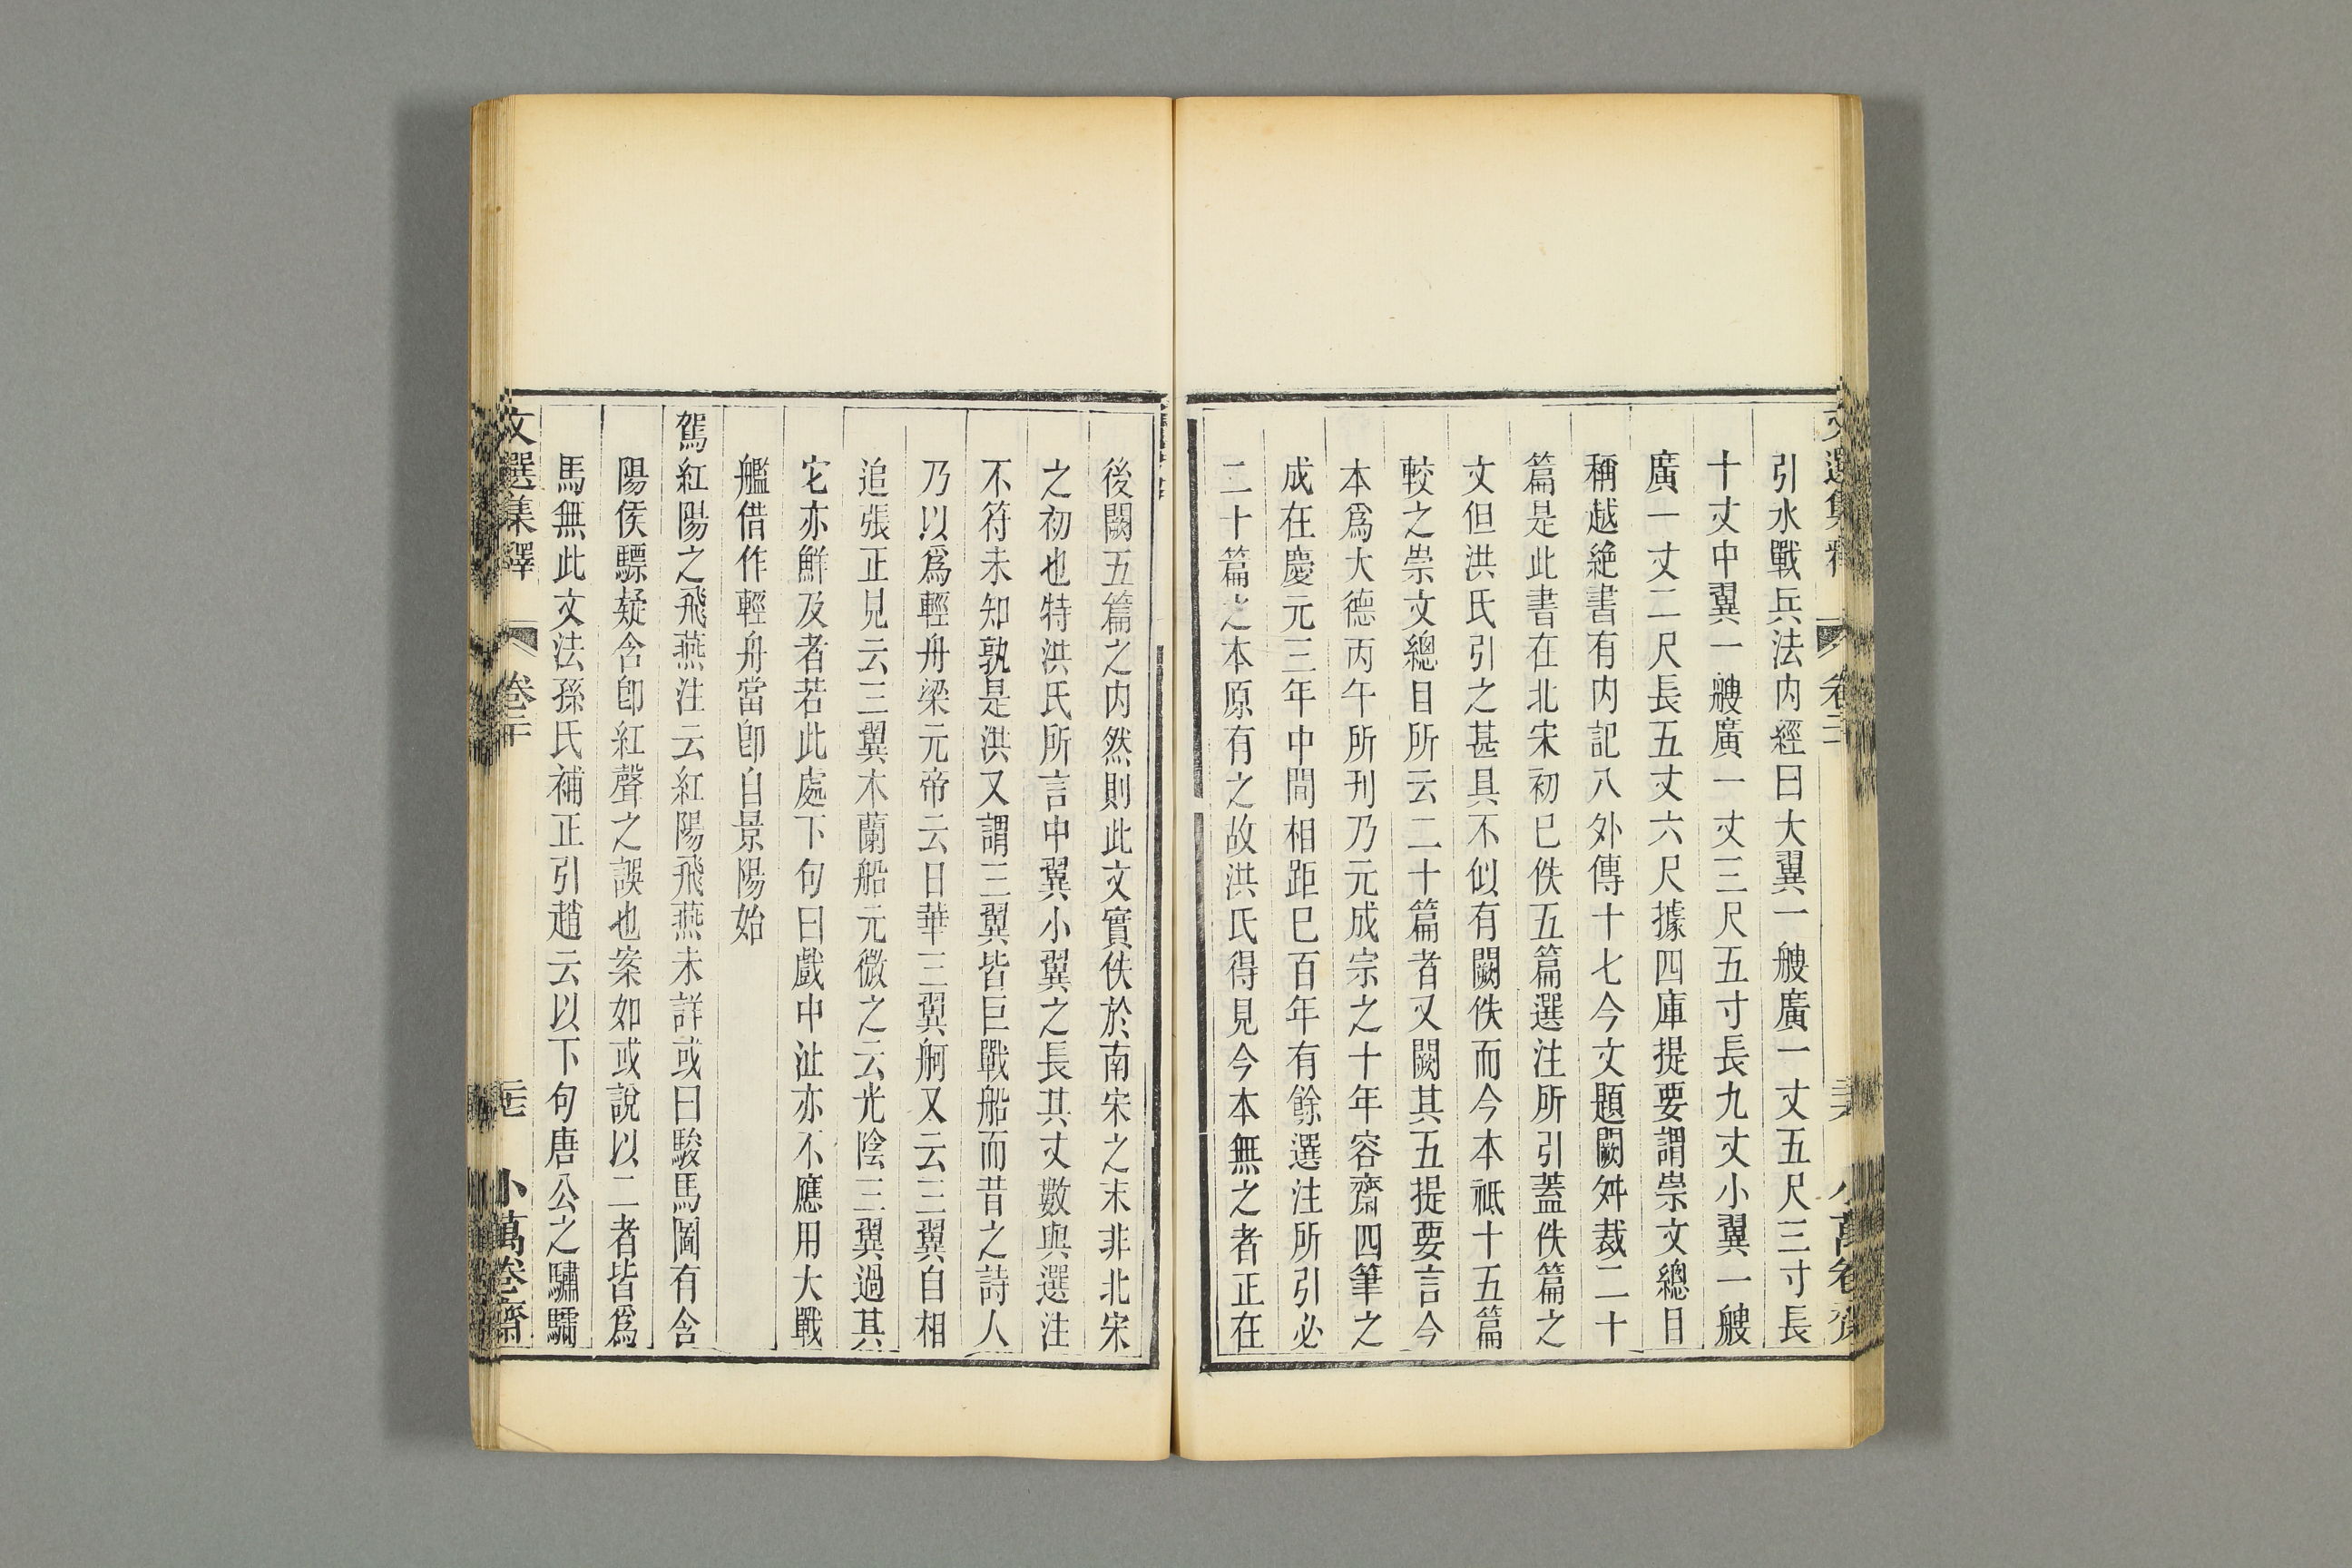 引水戰兵法内經曰大翼一艘廣一丈五尺三寸長
十丈中翼一艘廣一丈三尺五寸長九丈小翼一艘
廣一丈二尺長五丈六尺據四庫提要謂崇文總目
稱越絶書有内記八外傳十七今文題闕舛裁二十
篇是此書在北宋初已佚五篇選注所引蓋佚篇之
文但洪氏引之甚具不似有闕佚而今本祗十五篇
較之崇文總目所云二十篇者又闕其五提要言今
本爲大德丙午所刊乃元成宗之十年容齋四筆之
成在慶元三年中間相距巳百年有餘選注所引必
二十篇之本原有之故洪氏得見今本無之者正在
後闕五篇之内然則此文實佚於南宋之末非北宋
之初也特洪氏所言中翼小翼之長其丈數與選注
不符未知孰是洪又謂三翼皆巨戰船而昔之詩人
乃以爲輕舟梁元帝云日華三翼舸又云三翼自相
追張正見云三翼木蘭船元微之云光陰三翼過其
它亦鮮及者若此處下句曰戲中沚亦不應用大戰
艦借作輕舟當卽自景陽始
駕紅陽之飛燕注云紅陽飛燕未詳或曰駿馬圖有含
陽侯驃疑含卽紅聲之誤也案如或說以二者皆爲
馬無此文法孫氏補正引趙云以下句唐公之驌驦
文選集釋
卷二十
二十七
小萬卷齋